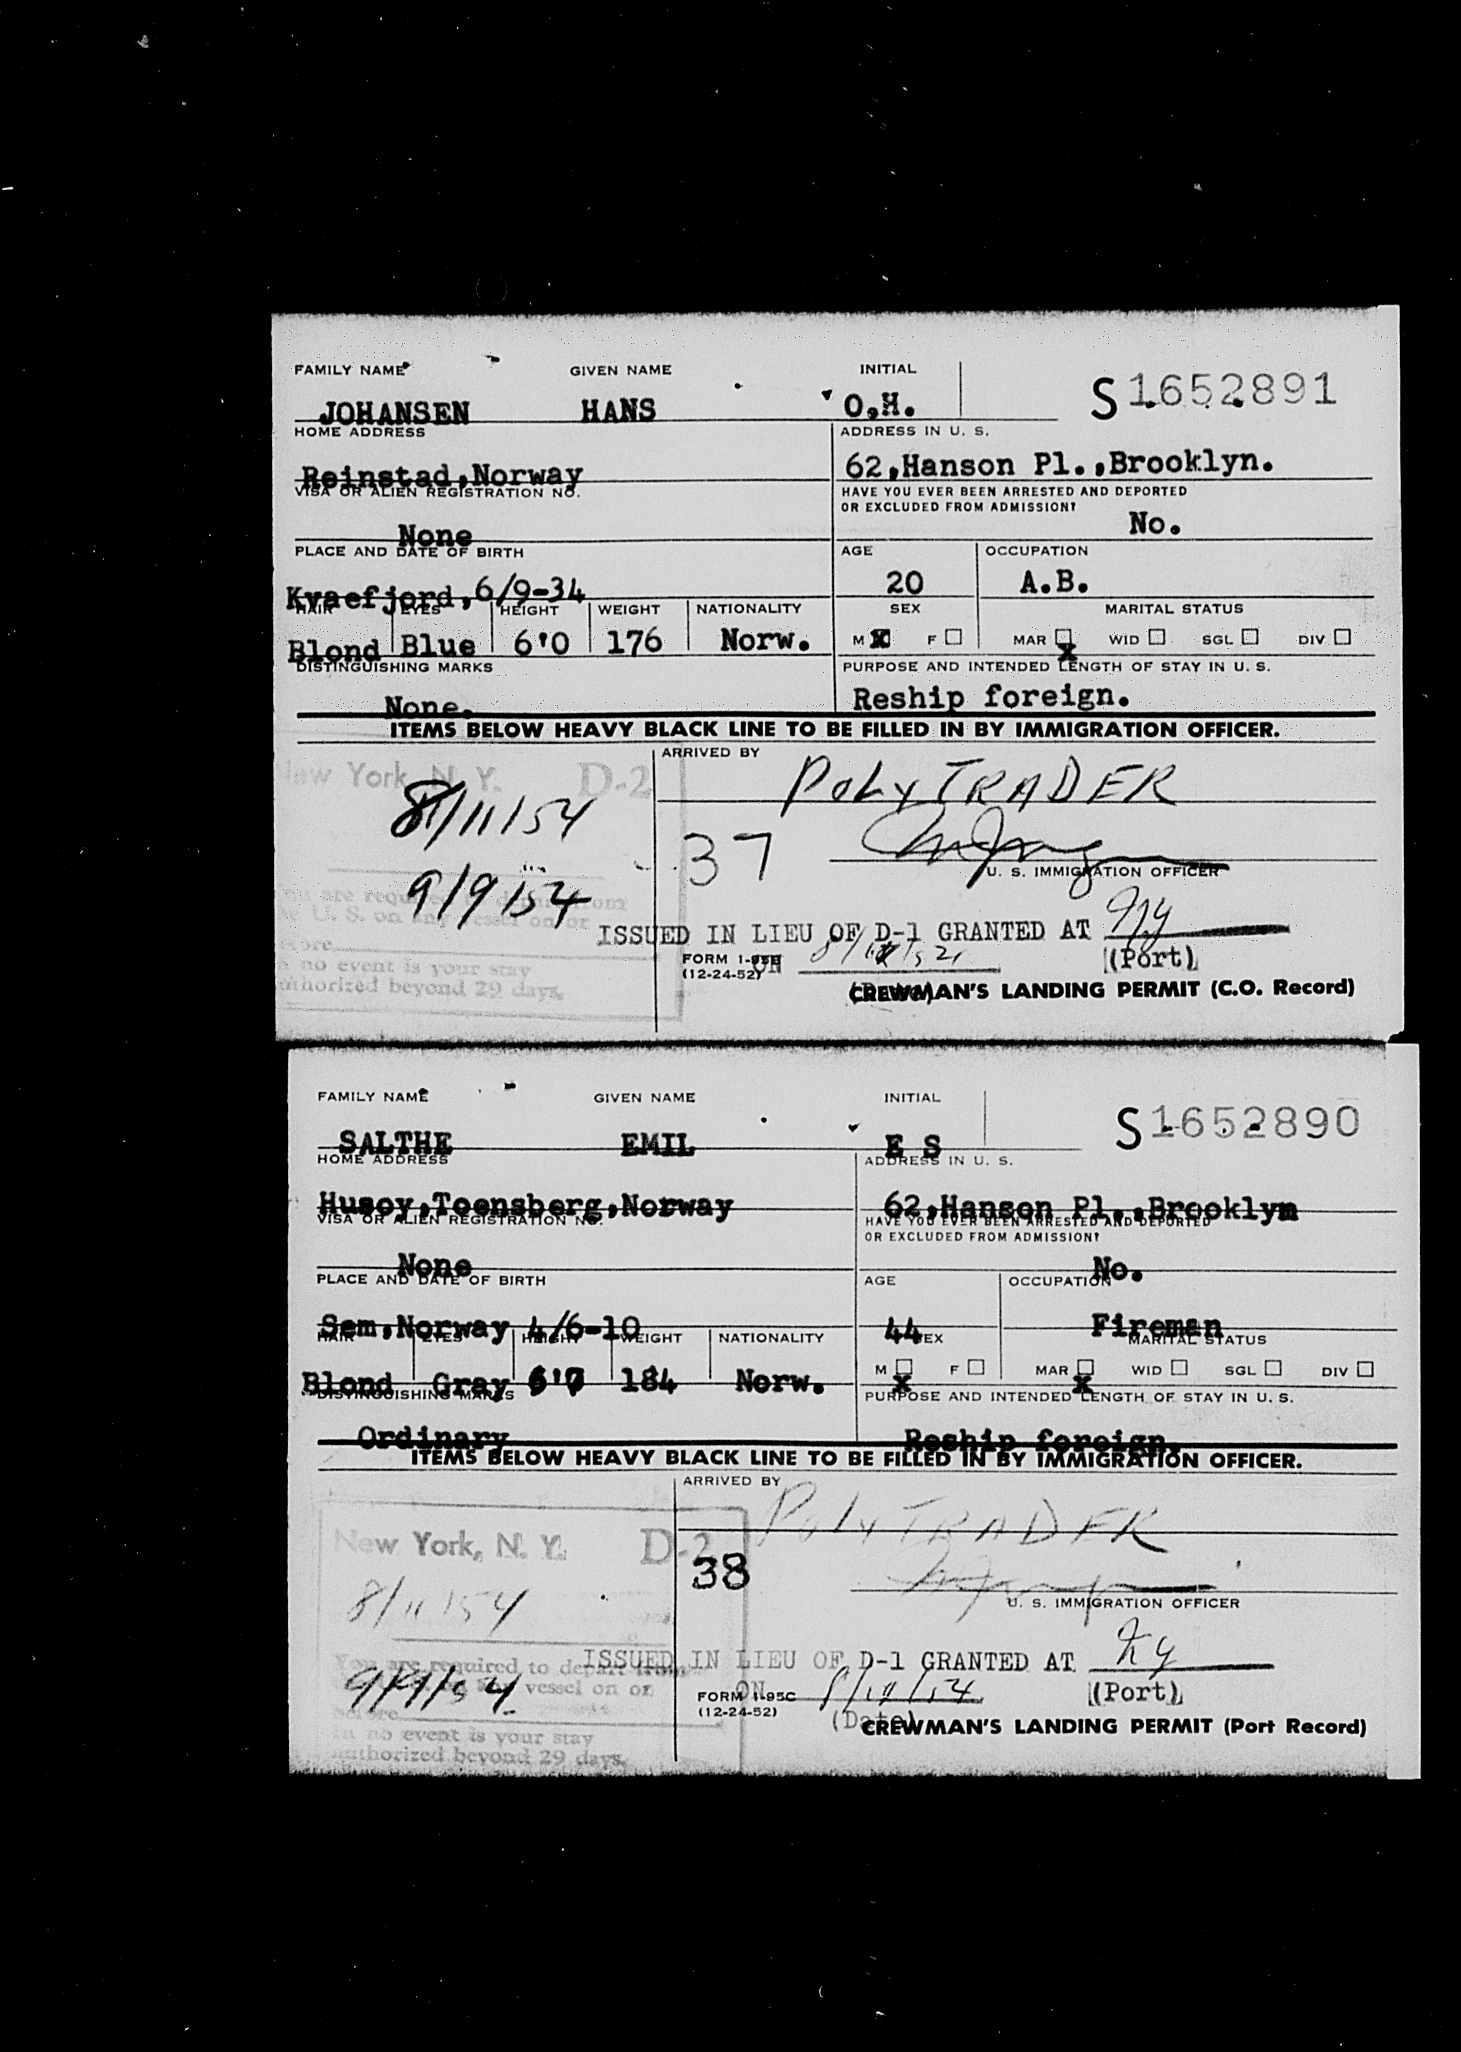 FAMILY NAME GIVEN NAME INITIAL
JOHANSEN HANS O,H. S 1652891
HOME ADDRESS ADDRESS IN U. S.
Reinstad,Norway 62,Hanson Pl.,Brooklyn.
VISA OR ALIEN REGISTRATION NO. HAVE YOU EVER BEEN ARRESTED AND DEPORTED
OR EXCLUDED FROM ADMISSION?
None No.
PLACE AND DATE OF BIRTH AGE OCCUPATION
Kvaefjord,6/9-34 20 A.B.
HAIR EYES HEIGHT WEIGHT NATIONALITY SEX MARITAL STATUS
Blond Blue 6'0 176 Norw. M X F MAR X WID SGL DIV
DISTINGUISHING MARKS PURPOSE AND INTENDED LENGTH OF STAY IN U. S.
None. Reship foreign.
ITEMS BELOW HEAVY BLACK LINE TO BE FILLED IN BY IMMIGRATION OFFICER.
ARRIVED BY
New York, N. Y. D-2 POLYTRADER
8/11/54
37
U. S. IMMIGRATION OFFICER
9/9/54
You are required to depart from
the U. S. on any vessel on or
before
ISSUED IN LIEU OF D-1 GRANTED AT NY
in no event is your stay
authorized beyond 29 days.
FORM I-95B ON (Port)
(12-24-52)
(Date)
CREWMAN'S LANDING PERMIT (C.O. Record)
FAMILY NAME GIVEN NAME INITIAL
SALTHE EMIL E S S 1652890
HOME ADDRESS ADDRESS IN U. S.
Husoy,Toensberg,Norway 62,Hanson Pl.,Brooklyn
VISA OR ALIEN REGISTRATION NO. HAVE YOU EVER BEEN ARRESTED AND DEPORTED
OR EXCLUDED FROM ADMISSION?
None No.
PLACE AND DATE OF BIRTH AGE OCCUPATION
Sem,Norway 4/6-10 44 Fireman
HAIR EYES HEIGHT WEIGHT NATIONALITY SEX MARITAL STATUS
Blond Gray 184 Norw. M X F MAR X WID SGL DIV
DISTINGUISHING MARKS PURPOSE AND INTENDED LENGTH OF STAY IN U. S.
Ordinary Reship foreign.
ITEMS BELOW HEAVY BLACK LINE TO BE FILLED IN BY IMMIGRATION OFFICER.
ARRIVED BY
PolyTRADER
New York, N. Y. D-2
38
8/11/54
U. S. IMMIGRATION OFFICER
ISSUED IN LIEU OF D-1 GRANTED AT NY
You are required to depart from
vessel on or
9/9/54
before
FORM I-95C ON 8/11/54 (Port)
(12-24-52)
(Date)
in no event is your stay
authorized beyond 29 days.
CREWMAN'S LANDING PERMIT (Port Record)